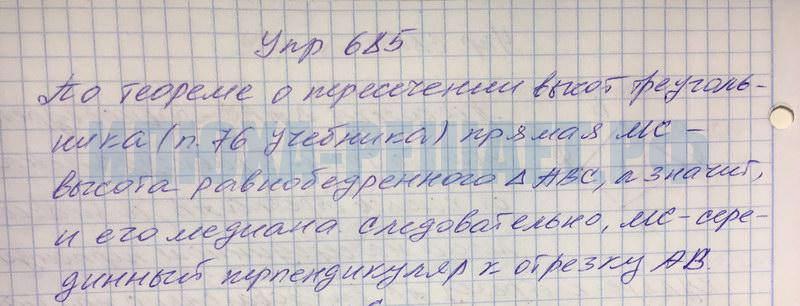 Упр 685
По теореме о пересечении высот треуголь-
ника (п. 76 учебника) прямая МС -
высота равнобедренного Δ АВС, а значит,
и его медиана. следовательно, МС - сере-
динный перпендикуляр к отрезку АВ.